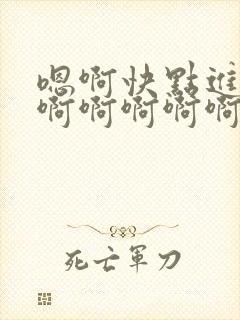 嗯啊快點進
啊啊啊啊啊
死亡軍刀